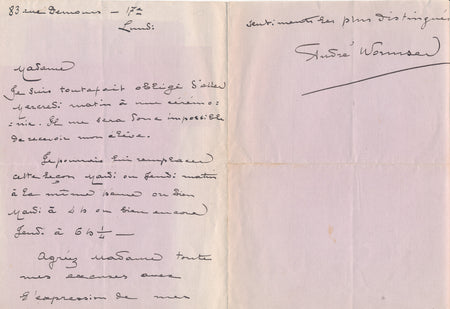 83 rue Demours — 17e
Lundi
Madame
Je suis toutafait obligé d'aller
Mercredi matin à une cérémo=
=nie. Il me sera donc impossible
de recevoir mon élève.
Je pourrais lui remplacer
cette leçon Mardi ou Jeudi matin
à la même heure ou bien
Mardi à 4h ou bien encore
Jeudi à 6h ¼ —
Agréez Madame toute
mes excuses avec
l'expression de mes
sentiments les plus distingués
André Wormser